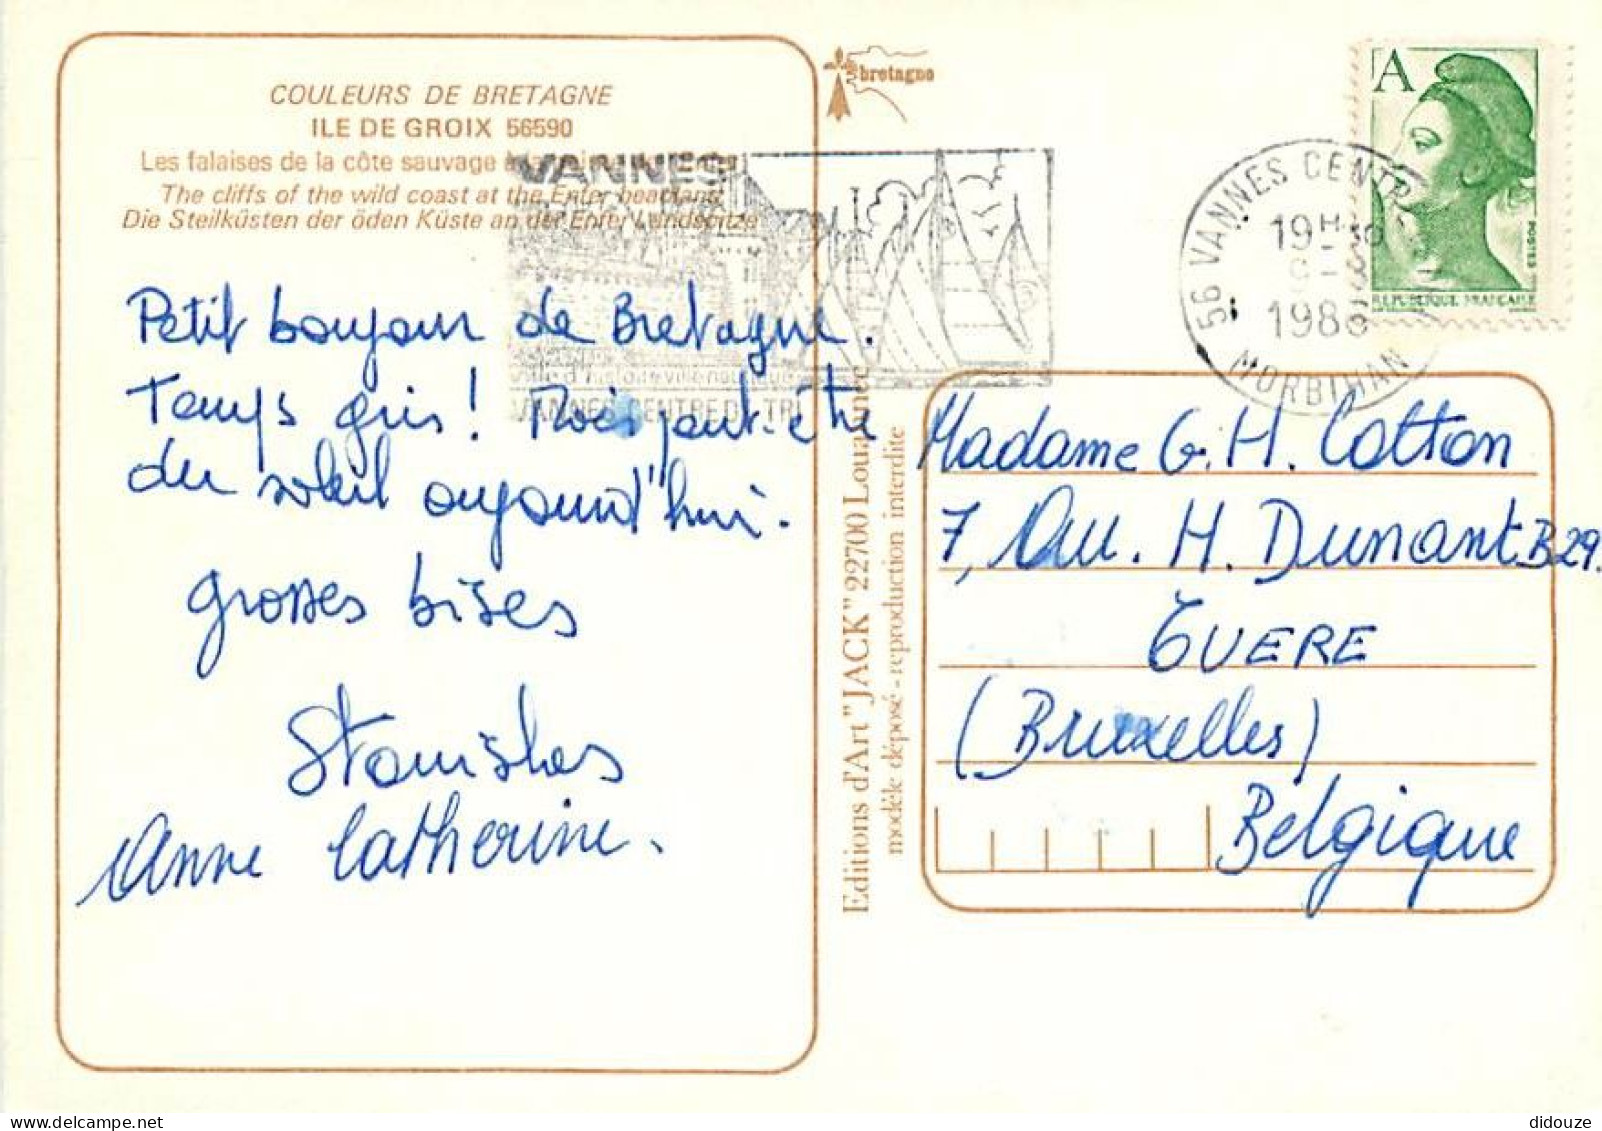 COULEURS DE BRETAGNE
ILE DE GROIX 56590
Les falaises de la côte sauvage à la
The cliffs of the wild coast at the Enfer headland
Die Steilküsten der öden Küste an der Enfer Landspitze
Petit bonjour de Bretagne.
Temps gris! Mais peut-être
du soleil aujourd'hui.
grosses bises
Stanislas
Anne Catherine.
VANNES
ville d'histoire ville nautique
VANNES CENTRE DE TRI
bretagne
Editions d'Art "JACK" 22700 Louannec
modèle déposé - reproduction interdite
A
POSTES
REPUBLIQUE FRANÇAISE
56 VANNES CENTR
19H30
1986
MORBIHAN
Madame G. H. Cotton
7, Av. H. Dunant B29.
EVERE
(Bruxelles)
Belgique
didouze